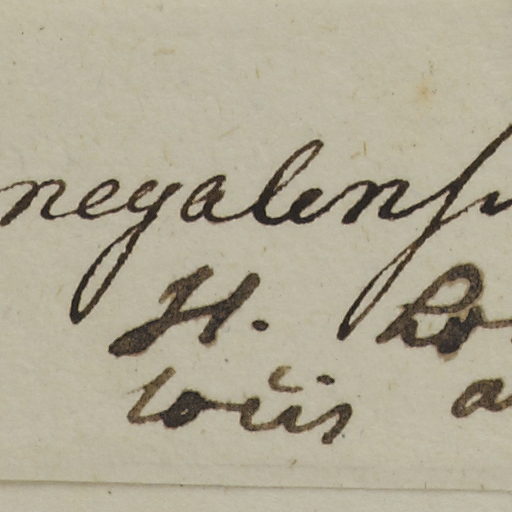 negalensi
H. Lo
loüis a